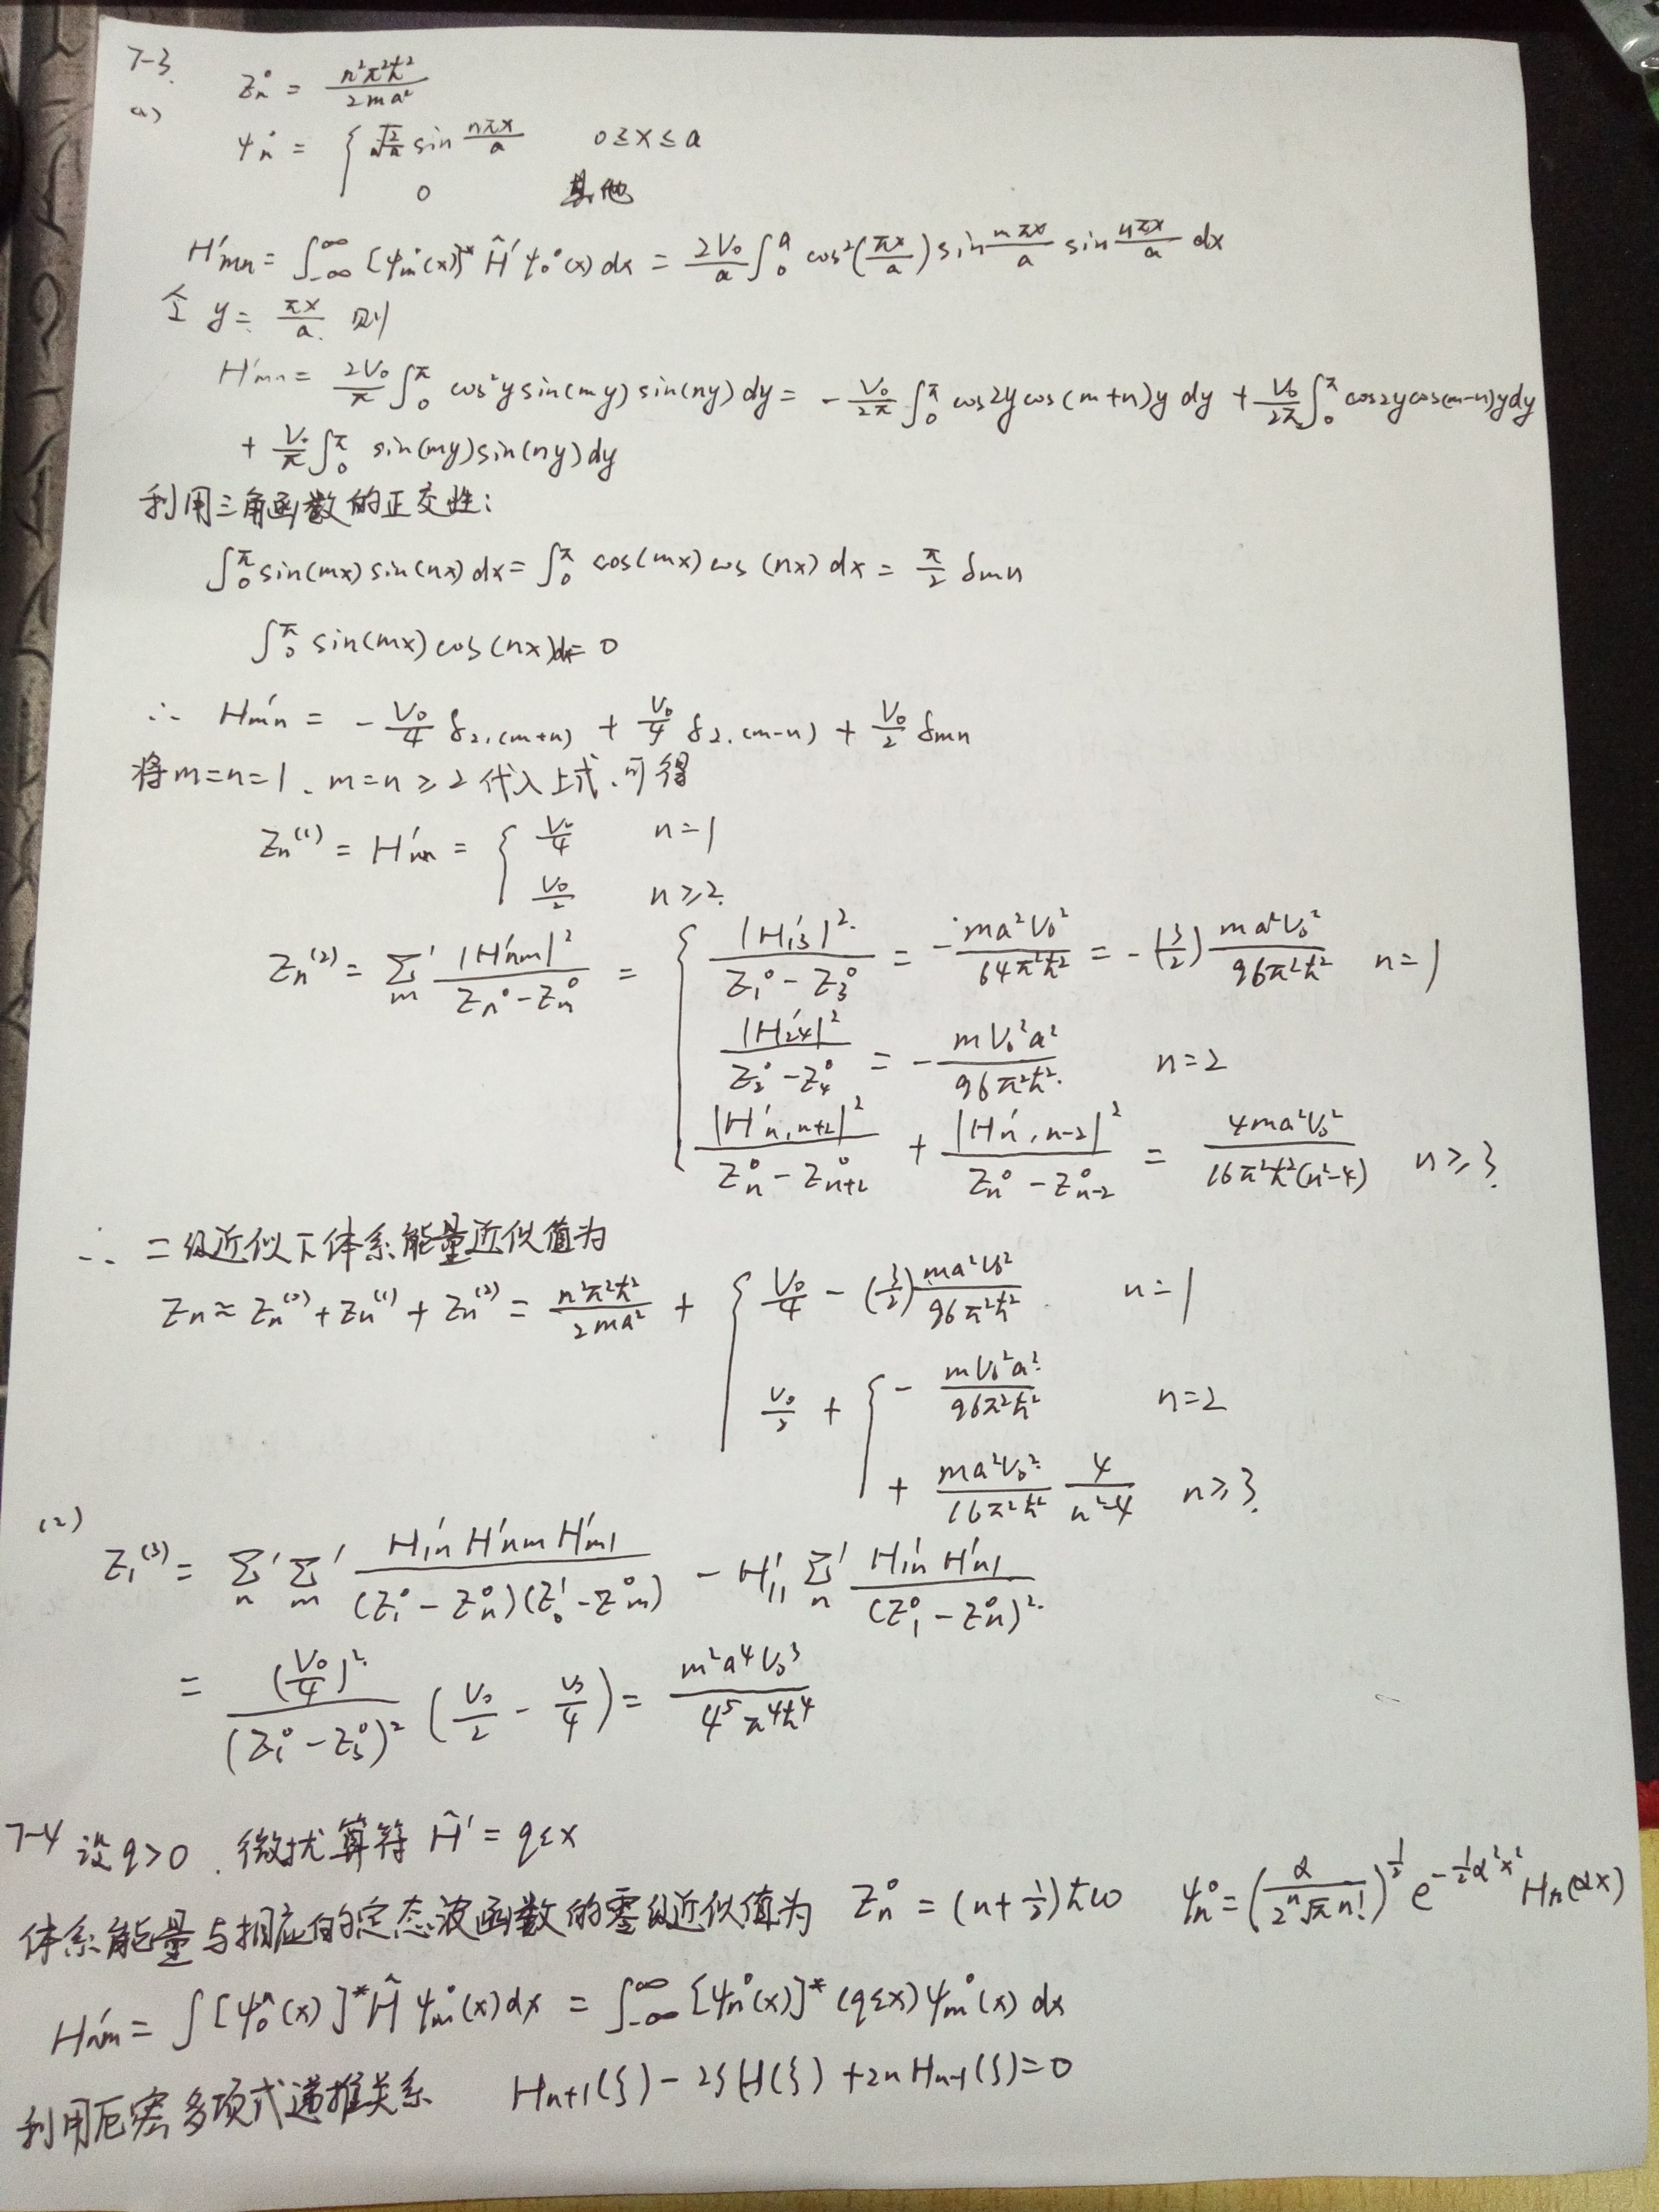 7-3.
(1) Z_n^0 = \frac{n^2π^2ħ^2}{2ma^2}
ψ_n^0 = { \sqrt{\frac{2}{a}} sin \frac{nπx}{a}    0≤x≤a
0    其他
H'_{mn} = ∫_{-∞}^{∞} [ψ_m^0(x)]^* Ĥ' ψ_0^0(x) dx = \frac{2V_0}{a} ∫_0^a cos^2(\frac{πx}{a}) sin\frac{mπx}{a} sin\frac{nπx}{a} dx
令 y = \frac{πx}{a}. 则
H'_{mn} = \frac{2V_0}{π} ∫_0^π cos^2y sin(my) sin(ny) dy = -\frac{V_0}{2π} ∫_0^π cos2y cos(m+n)y dy + \frac{V_0}{2π} ∫_0^π cos2y cos(m-n)y dy
+ \frac{V_0}{π} ∫_0^π sin(my) sin(ny) dy
利用三角函数的正交性:
∫_0^π sin(mx) sin(nx) dx = ∫_0^π cos(mx) cos(nx) dx = \frac{π}{2} δ_{mn}
∫_0^π sin(mx) cos(nx) dx = 0
∴ H'_{mn} = -\frac{V_0}{4} δ_{2,(m+n)} + \frac{V_0}{4} δ_{2,(m-n)} + \frac{V_0}{2} δ_{mn}
将m=n=1、m=n≥2代入上式,可得
Z_n^{(1)} = H'_{nn} = { \frac{V_0}{4}    n=1
\frac{V_0}{2}    n≥2.
Z_n^{(2)} = Σ'_m \frac{|H'_{nm}|^2}{Z_n^0 - Z_n^0} = { \frac{|H'_{13}|^2}{Z_1^0 - Z_3^0} = -\frac{ma^2V_0^2}{64π^2ħ^2} = -(\frac{3}{2})\frac{ma^2V_0^2}{96π^2ħ^2}    n=1
\frac{|H'_{24}|^2}{Z_2^0 - Z_4^0} = -\frac{mV_0^2a^2}{96π^2ħ^2}    n=2
\frac{|H'_{n,n+2}|^2}{Z_n^0 - Z_{n+2}^0} + \frac{|H'_{n,n-2}|^2}{Z_n^0 - Z_{n-2}^0} = \frac{4ma^2V_0^2}{16π^2ħ^2(n^2-4)}    n≥3.
∴ 二级近似下体系能量近似值为
Z_n ≈ Z_n^{(0)} + Z_n^{(1)} + Z_n^{(2)} = \frac{n^2π^2ħ^2}{2ma^2} + { \frac{V_0}{4} - (\frac{3}{2})\frac{ma^2V_0^2}{96π^2ħ^2}    n=1
\frac{V_0}{2} + { -\frac{mV_0^2a^2}{96π^2ħ^2}    n=2
+ \frac{ma^2V_0^2}{16π^2ħ^2} \frac{4}{n^2-4}    n≥3.
(2) Z_1^{(3)} = Σ'_n Σ'_m \frac{H'_{1n} H'_{nm} H'_{m1}}{(Z_1^0 - Z_n^0)(Z_0' - Z_m^0)} - H'_{11} Σ'_n \frac{H'_{1n} H'_{n1}}{(Z_1^0 - Z_n^0)^2}
= \frac{(\frac{V_0}{4})^2}{(Z_1^0 - Z_3^0)^2} (\frac{V_0}{2} - \frac{V_0}{4}) = \frac{m^2a^4V_0^3}{4^5π^4ħ^4}
7-4 设q>0. 微扰算符 Ĥ' = qεx
体系能量与相应的定态波函数的零级近似值为 Z_n^0 = (n+\frac{1}{2})ħω    ψ_n^0 = (\frac{α}{2^n\sqrt{π}n!})^{\frac{1}{2}} e^{-\frac{1}{2}α^2x^2} H_n(αx)
H'_{nm} = ∫[ψ_0^n(x)]^* Ĥ ψ_m^0(x) dx = ∫_{-∞}^{∞} [ψ_n^0(x)]^* (qεx) ψ_m^0(x) dx
利用厄密多项式递推关系    H_{n+1}(ξ) - 2ξH(ξ) + 2nH_{n-1}(ξ) = 0